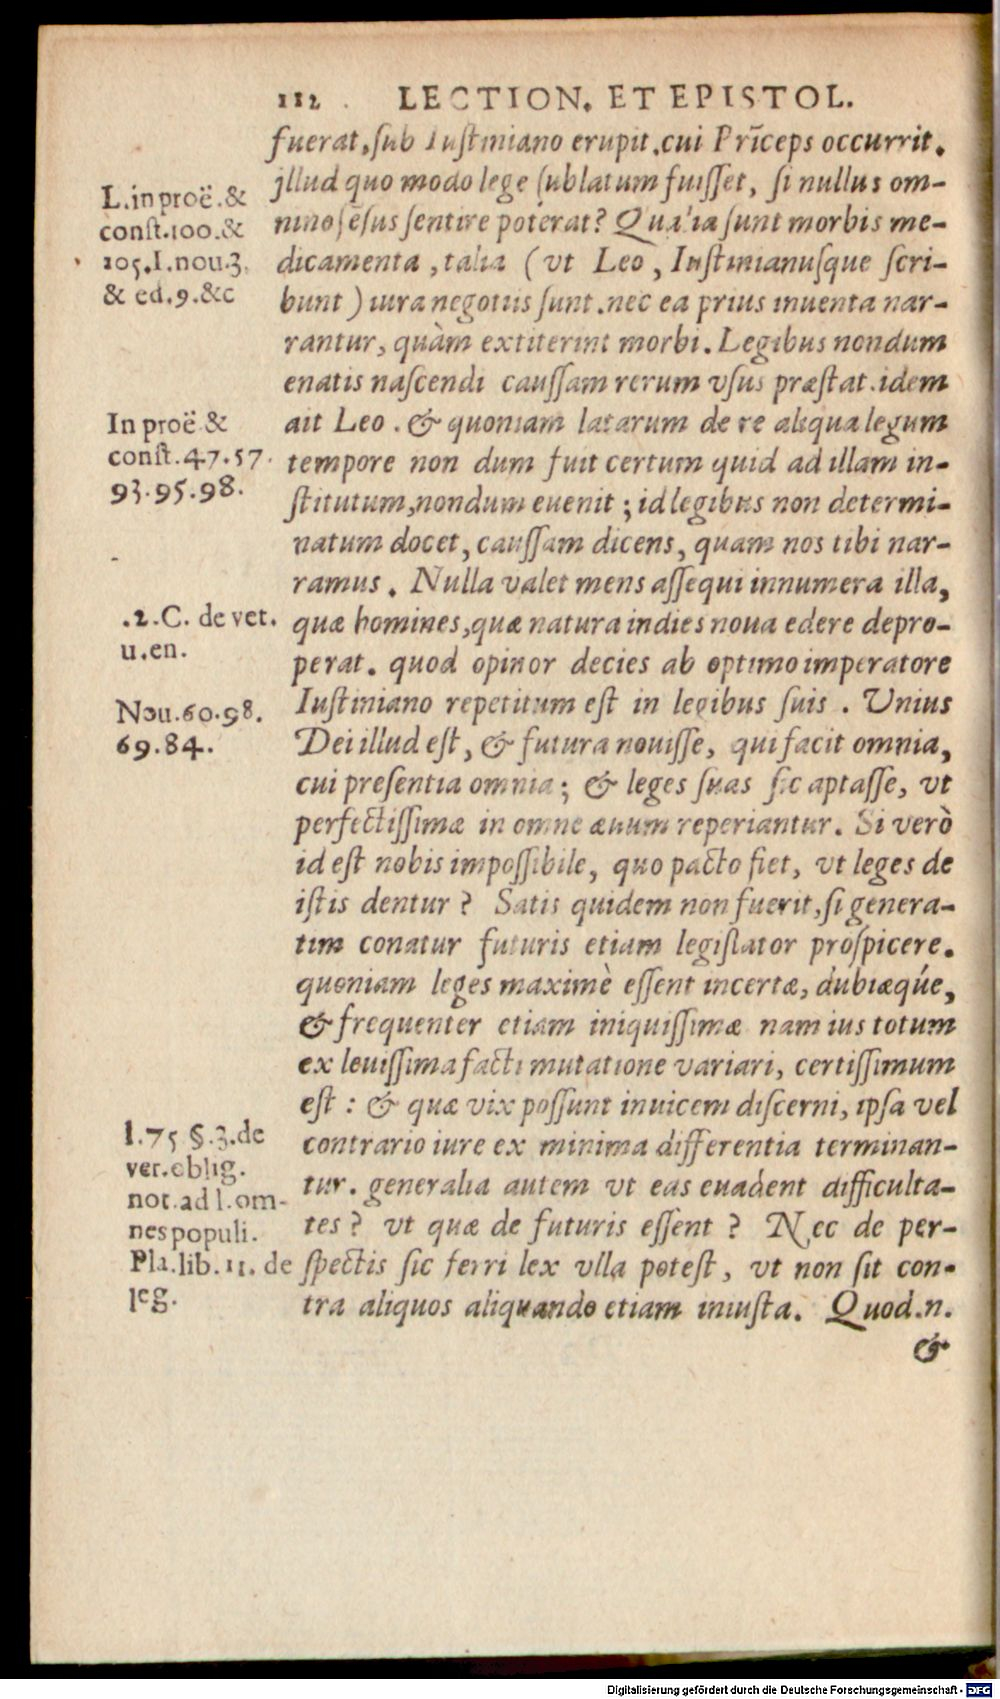 112 LECTION. ET EPISTOL.
fuerat, sub Iustiniano erupit. cui Prīceps occurrit.
jllud quo modo lege sublatum fuisset, si nullus om-
nino sēsus sentire poterat? Qualia sunt morbis me-
dicamenta, talia (vt Leo, Iustinianusque scri-
bunt) iura negotiis sunt. nec ea prius inuenta nar-
rantur, quàm extiterint morbi. Legibus nondum
enatis nascendi caussam rerum vsus præstat. idem
ait Leo. & quoniam latarum de re aliqua legum
tempore non dum fuit certum quid ad illam in-
stitutum, nondum euenit; id legibus non determi-
natum docet, caussam dicens, quam nos tibi nar-
ramus. Nulla valet mens assequi innumera illa,
quæ homines, quæ natura indies noua edere depro-
perat. quod opinor decies ab optimo imperatore
Iustiniano repetitum est in legibus suis. Vnius
Dei illud est, & futura nouisse, qui facit omnia,
cui presentia omnia; & leges suas sic aptasse, vt
perfectissimæ in omne æuum reperiantur. Si verò
id est nobis impossibile, quo pacto fiet, vt leges de
istis dentur? Satis quidem non fuerit, si genera-
tim conatur futuris etiam legislator prospicere.
quoniam leges maximè essent incertæ, dubiæqúe,
& frequenter etiam iniquissimæ nam ius totum
ex leuissima facti mutatione variari, certissimum
est: & quæ vix possunt inuicem discerni, ipsa vel
contrario iure ex minima differentia terminan-
tur. generalia autem vt eas euadent difficulta-
tes? vt quæ de futuris essent? Nec de per-
spectis sic ferri lex vlla potest, vt non sit con-
tra aliquos aliquando etiam iniusta. Quod.n.
&
L. in proë. &
const. 100. &
105. I. nou. 3.
& ed. 9. &c
In proë &
const. 47. 57.
93. 95. 98.
.2. C. de vet.
u. en.
Nou. 60. 98.
69. 84.
l. 75 §. 3. de
ver. oblig.
not. ad l. om-
nes populi.
Pla. lib. 11. de
leg.
Digitalisierung gefördert durch die Deutsche Forschungsgemeinschaft - DFG